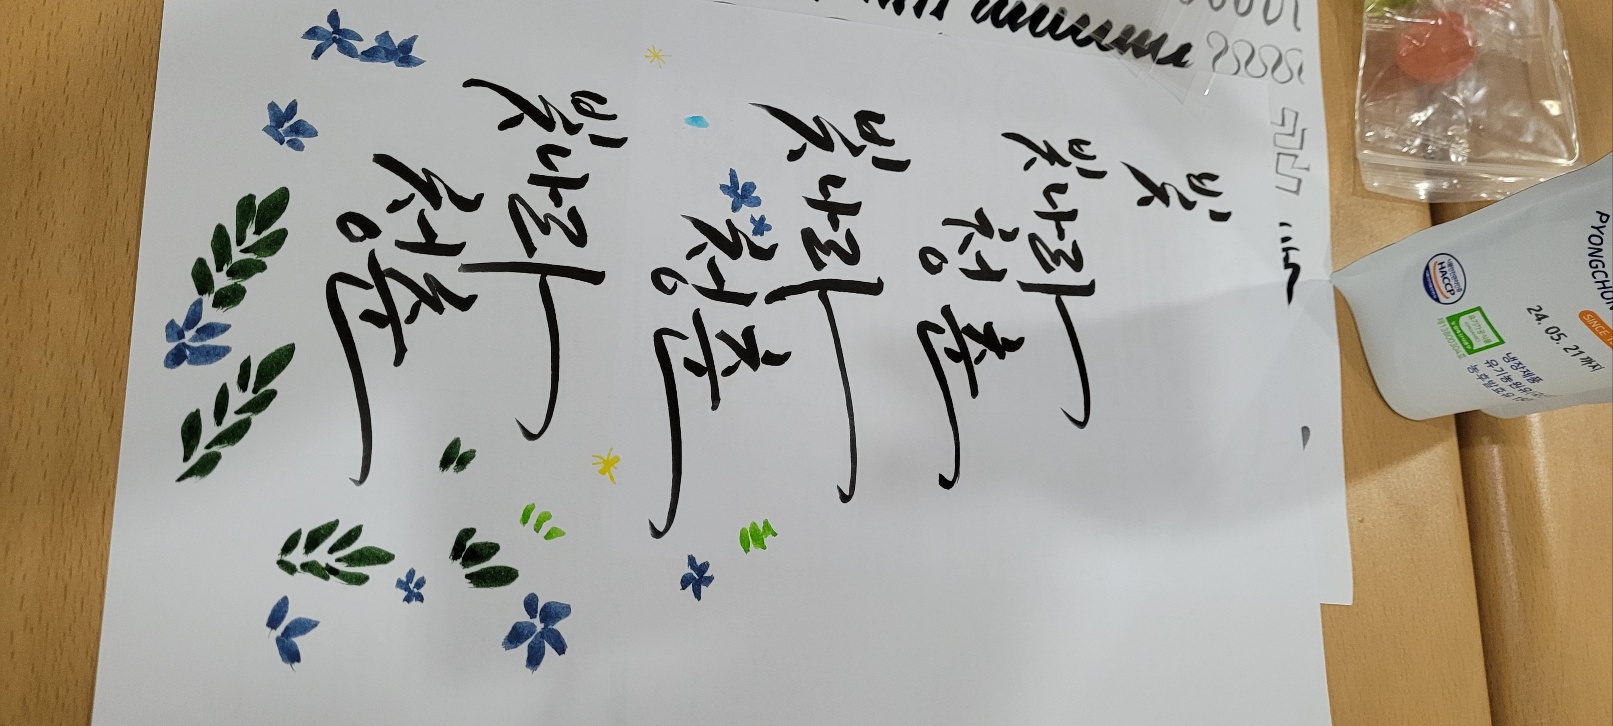 빛
빛나라
청춘
빛나라
청춘
빛나라
청춘
SINCE
24. 05. 21까지
냉장제품
농후발효유
HACCP